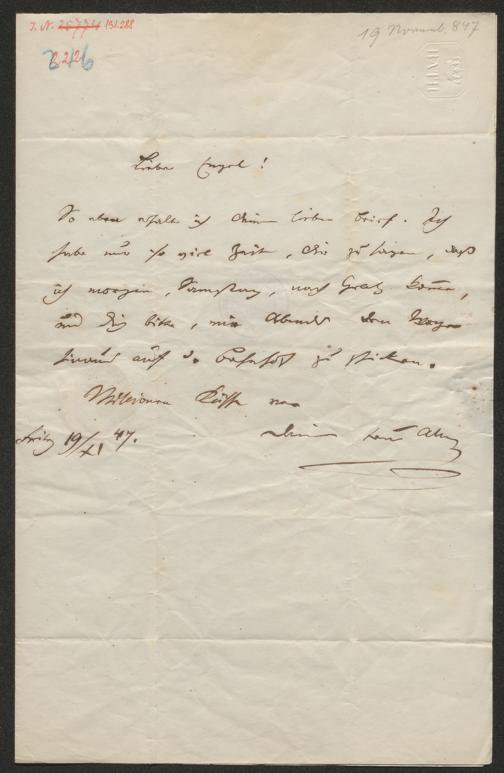 I. N. 25774 191.288
222
216
19 Novemb. 847
BATH
Lieber Engel!
So eben erhalte ich deinen lieben Brief. Ich
habe nur so viel Zeit, dir zu sagen, daß
ich morgen, Samstag, nach Gratz komme,
und dich bitte, mir Abends den
auf d. Bahnhof zu schicken.
Millionen Küsse von
Freitag 19/XI 47.
Deinem